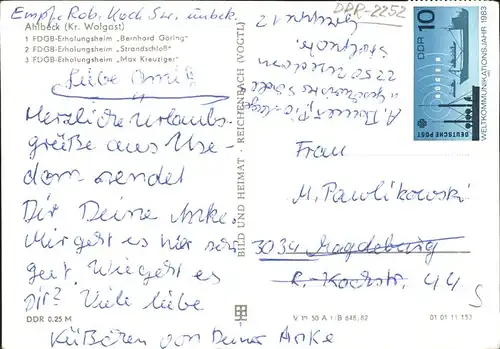 Empf. Rob. Koch Str. unbek.
DDR-2252
Ahlbeck (Kr. Wolgast)
1 FDGB-Erholungsheim „Bernhard Göring"
2 FDGB-Erholungsheim „Strandschloß"
3 FDGB-Erholungsheim „Max Kreuziger"
Liebe Omi!
Herzliche Urlaubs-
grüße aus Use-
dom sendet
Dir Deine Anke.
Mir geht es hier sehr
gut. Wie geht es
Dir? Viele liebe
Küßchen von Deiner Anke
DDR 0,25 M
BILD UND HEIMAT · REICHENBACH (VOGTL)
2250 Usedom
DDR 10
DEUTSCHE POST
WELTKOMMUNIKATIONSJAHR 1983
Frau
M. Pawlikowski
3034 Magdeburg
R.-Kochstr. 44
V 11 50 A 1/B 648/82
01 01 11 153